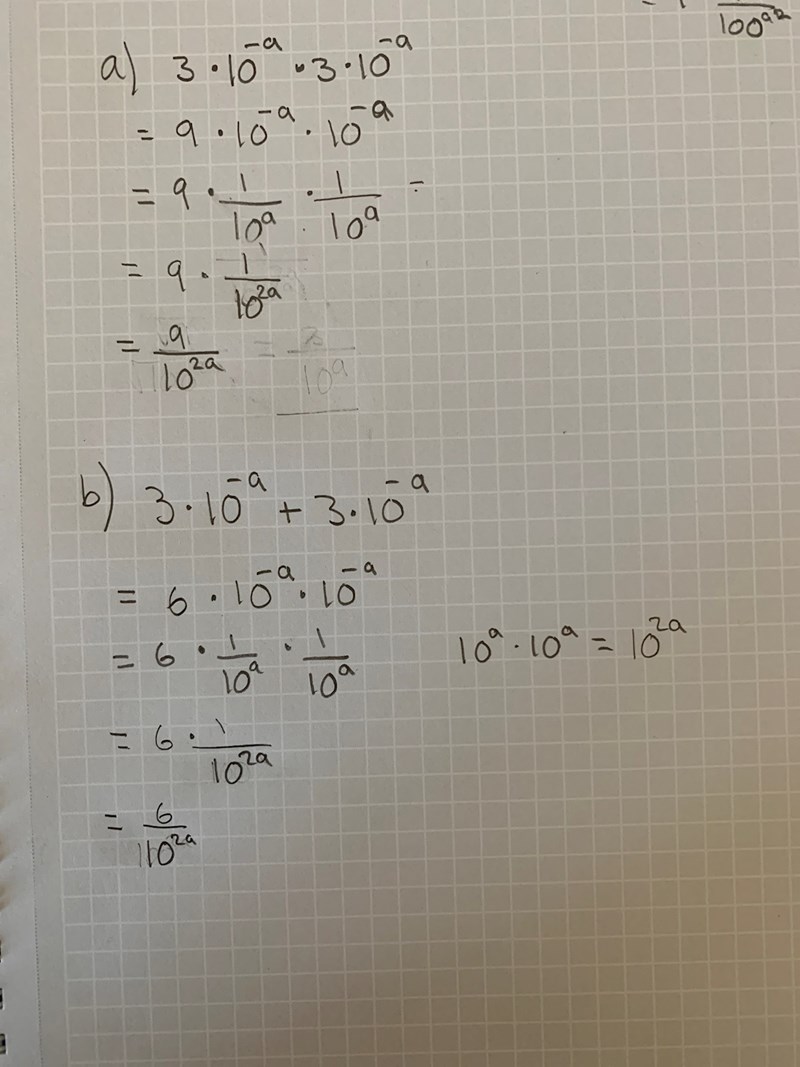 100^a²
a) 3 · 10^-a · 3 · 10^-a
= 9 · 10^-a · 10^-a
= 9 · 1/10^a · 1/10^a =
= 9 · 1/10^2a
= 9/10^2a
b) 3 · 10^-a + 3 · 10^-a
= 6 · 10^-a · 10^-a
= 6 · 1/10^a · 1/10^a 10^a · 10^a = 10^2a
= 6 · 1/10^2a
= 6/10^2a